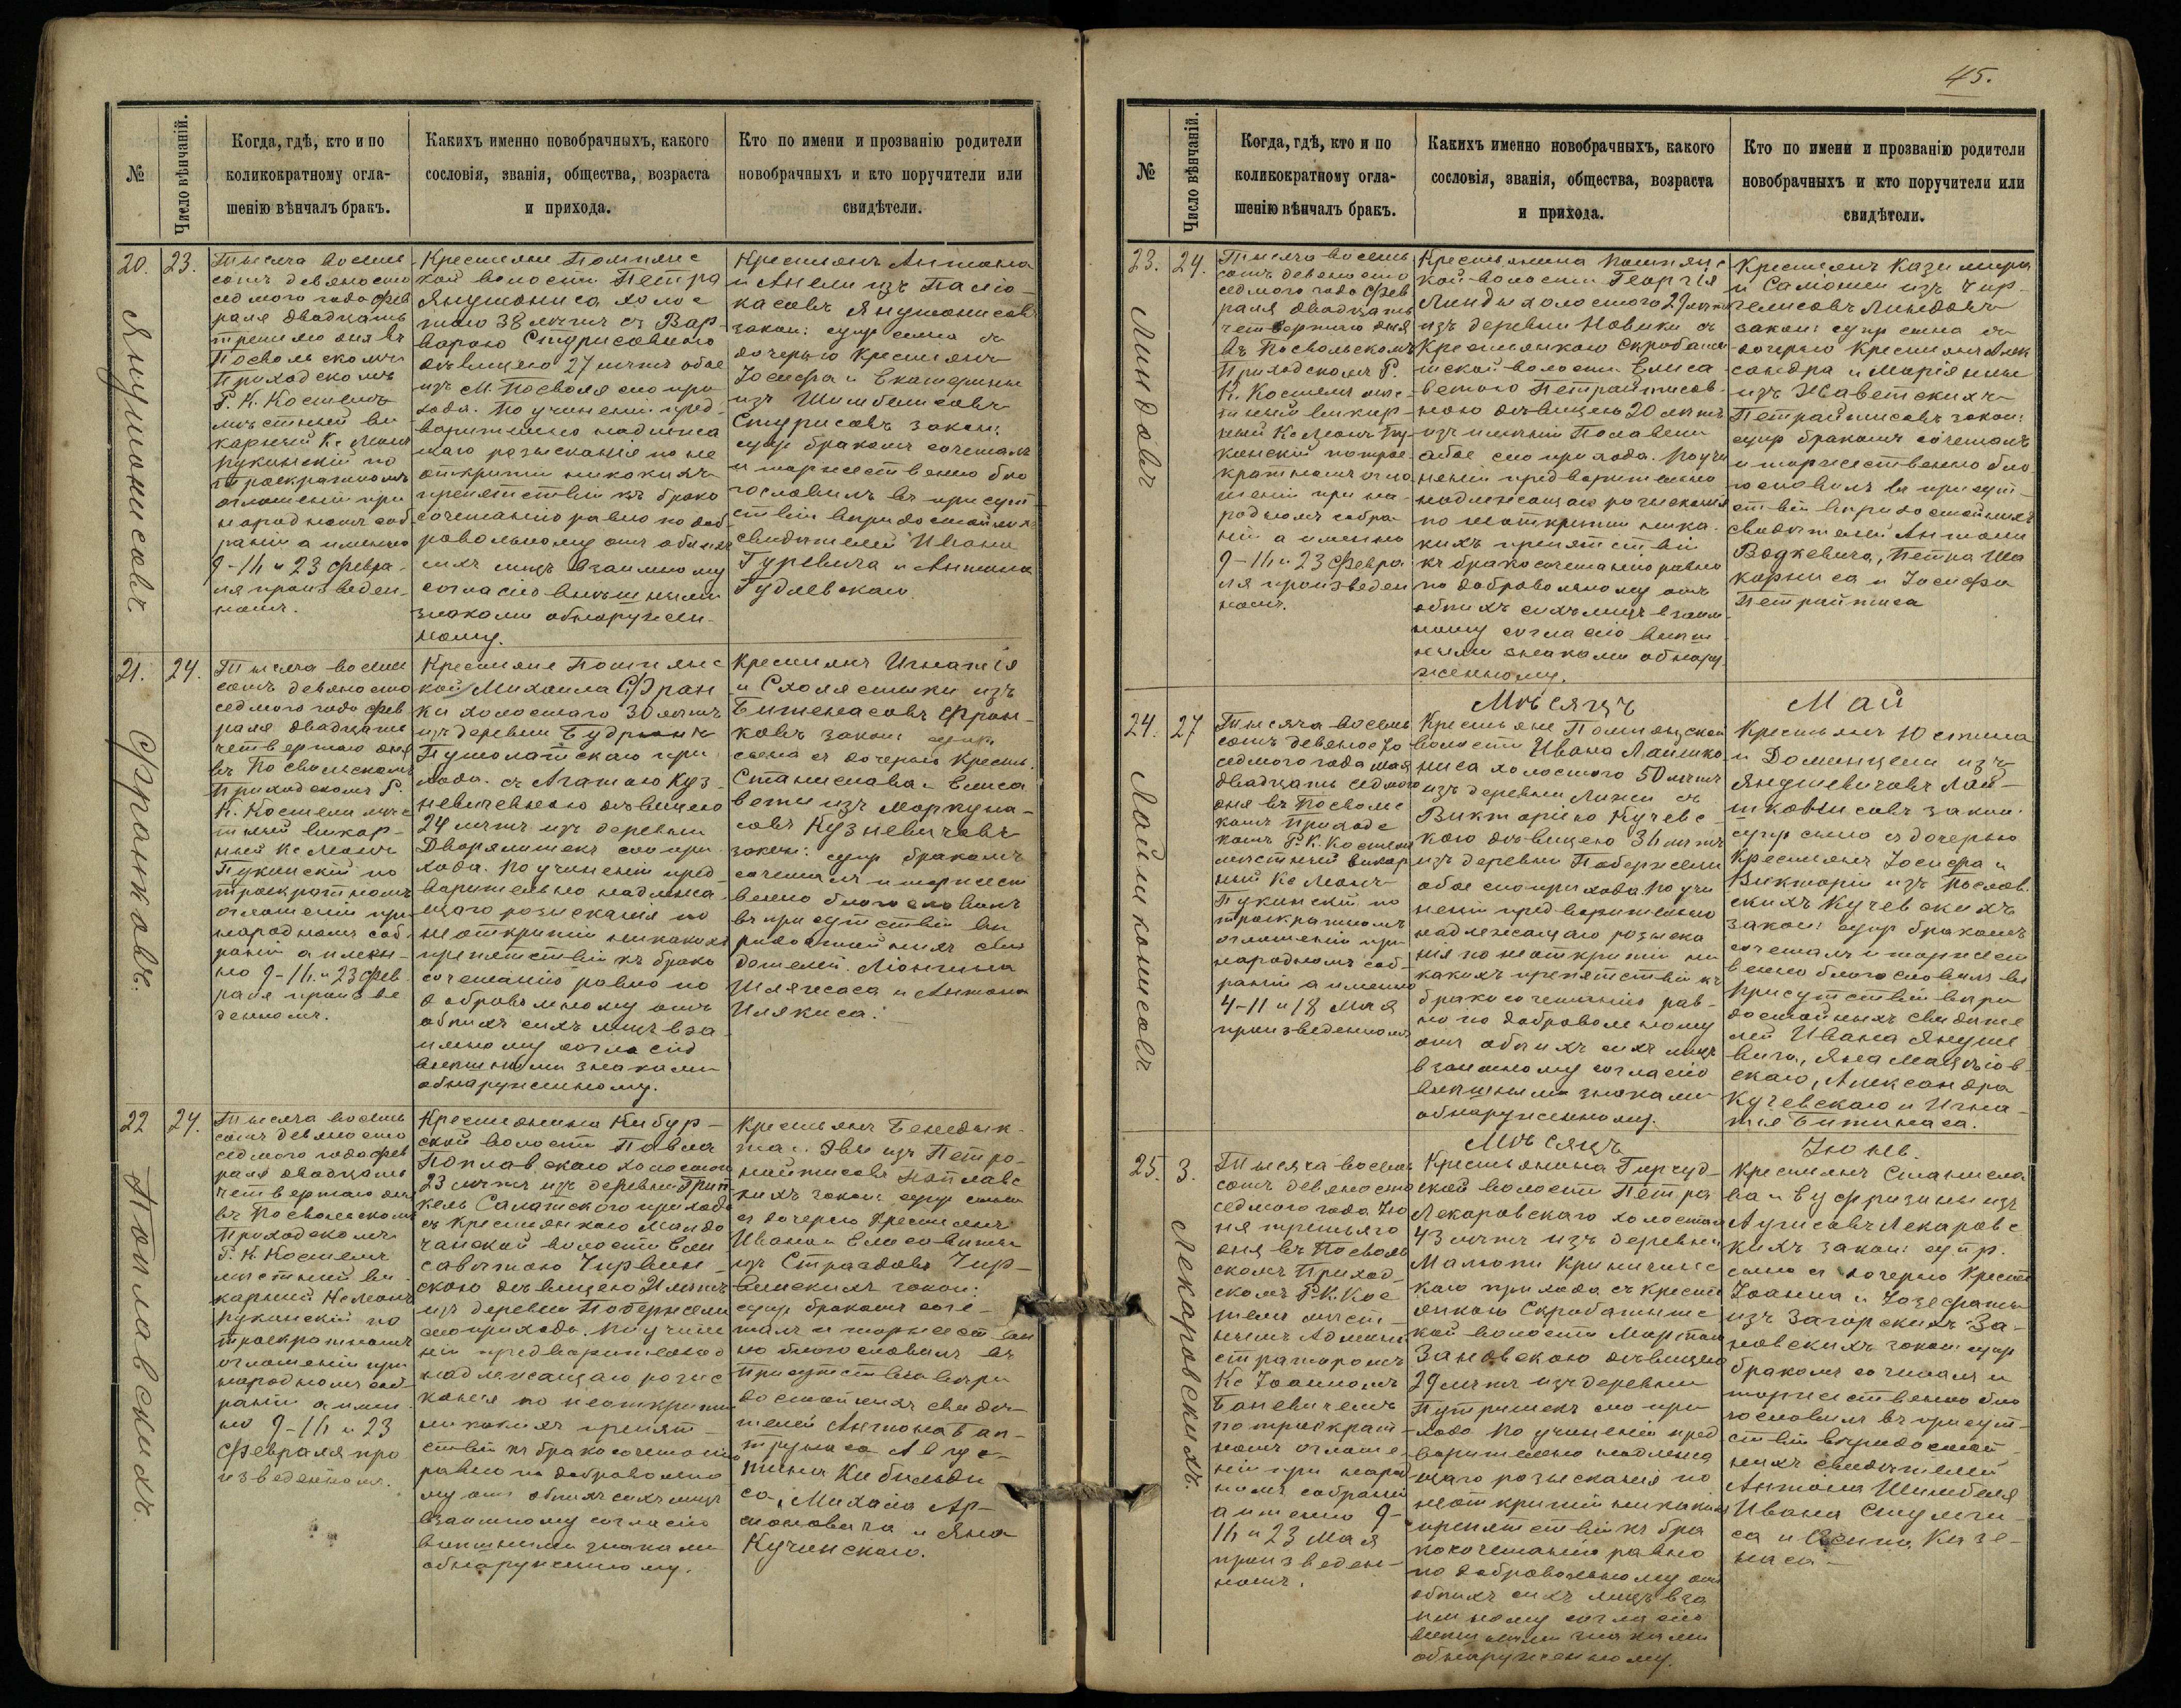 №
Число вѣнчаній.
Когда, гдѣ, кто и по
коликократному огла-
шенію вѣнчалъ бракъ.
Какихъ именно новобрачныхъ, какого
сословія, званія, общества, возраста
и прихода.
Кто по имени и прозванію родители
новобрачныхъ и кто поручители или
свидѣтели.
20. 23.
Янушонисовъ
Тысяча восемь
сотъ девяносто
седмого года Фев
раля двадцать
третьяго дня въ
Посвольскомъ
Приходскомъ
Р. К. Костелѣ
мѣстный ви
карный Кс Монч
пукинскій по
троекратномъ
оглашеніи при
народномъ соб
раніи а именно
9-16 и 23 Февра-
ля произведен-
номъ.
Крестьяне Помпянс
кой волости Петра
Янушониса холос
таго 38 лѣтъ съ Вар-
варою Стурисовною
дѣвицею 27 лѣтъ обое
изъ М. Посволя сего при
хода. По учиненіи пред-
варительно надлежа
щаго розысканія по не
открытіи никакихъ
препятствій къ брако
сочетанію равно по доб
ровольному отъ обоихъ
сихъ лицъ взаимному
согласію внѣшними
знаками обнаружен-
ному.
Крестьянъ Антона
и Анели изъ
Янушонисовъ
закон: супр сына съ
дочерью Крестьянъ
Іосифа и Екатерины
изъ Шимбелисовъ
Стурисовъ закон:
супр бракомъ сочеталъ
и торжественно бла
гословилъ въ присут
ствіи вѣридостойныхъ
свидѣтелей Ивана
Гуревича и Антона
Гудаевскаго.
21. 24.
Франковъ.
Тысяча восемь
сотъ девяносто
седмого года Фев
раля двадцать
четвертаго дня
въ Посвольскомъ
Приходскомъ Р.
К. Костели мѣс
тный викар-
ный Кс Монч
Пукинскій по
троекратномъ
оглашеніи при
народномъ соб
раніи а имен-
но 9-16 и 23 Фев
раля произве
денномъ.
Крестьяне Помпянс
кой Михаила Фран
ки холостаго 30 лѣтъ
изъ деревни
Пушолатскаго при
хода. съ Агатою Куз-
невичевною дѣвицею
24 лѣтъ изъ деревни
Дворялишекъ сего при
хода. По учиненіи пред-
варительно надлежа-
щаго розысканія по
неоткрытіи никакихъ
препятствій къ брако
сочетанію равно по
добровольному отъ
обоихъ сихъ лицъ вза
имному согласію
внѣшними знаками
обнаруженному.
Крестьянъ Игнатія
и Схолястики изъ
Битенасовъ Фран-
ковъ закон: супр
сына съ дочерью Кресть.
Станислава и Елиса
веты изъ Моркуна-
совъ Кузневичевъ
закон: супр бракомъ
сочеталъ и торжест
венно благословилъ
въ присутствіи вѣ
ридостойныхъ сви
дѣтелей.Ліонгина
Шляжаса и Антона
Илякиса.
22 24.
Поплавскихъ.
Тысяча восемь
сотъ девяносто
седмого года Фев
раля двадцать
четвертаго дня
въ Посвольскомъ
Приходскомъ
Р. К. Костелѣ
мѣстный ви
карный Кс Монч
пукинскій по
троекратномъ
оглашеніи при
народномъ соб
раніи а имен
но 9-16 и 23
Февраля про
изведенномъ.
Крестьянина Кибур-
ской волости Павла
Поплавскаго холостаго
23 лѣтъ изъ деревни Грип-
кель Салатскаго прихода
съ крестьянкою
волости Ели
саветою Чирвин-
скою дѣвицею 21 лѣтъ
изъ деревни Побержели
сего прихода. По учине
ніи предварительно
надлежащаго розыс
канія по неоткрытіи
никакихъ препят-
ствій къ бракосочетанію
равно по доброволно
му отъ обоихъ сихъ лицъ
взаимному согласію
внѣшними знаками
обнаруженному.
Крестьянъ Бенедик-
та и Эвы изъ Петро-
найтисовъ Поплавс
кихъ закон: супр сына
съ дочерью крестьянъ
Ивана и Елисаветы
изъ Страздовъ Чир-
винскихъ закон:
супр бракомъ соче-
талъ и торжествен
но благословилъ въ
присутствіи вѣри
достойныхъ свидѣ-
телей Антона
Авгус-
тина Кибилди
са, Михаила Ар-
и Яна
Кучинскаго.
45.
№
Число вѣнчаній.
Когда, гдѣ, кто и по
коликократному огла-
шенію вѣнчалъ бракъ.
Какихъ именно новобрачныхъ, какого
сословія, званія, общества, возраста
и прихода.
Кто по имени и прозванію родители
новобрачныхъ и кто поручители или
свидѣтели.
23. 24.
Линдовъ
Тысяча восемь
сотъ девяносто
седмого года Фев
раля двадцать
четвертаго дня
въ Посвольскомъ
Приходскомъ Р.
К. Костелѣ мѣс
тный викар-
ный Кс Монч Пу
кинскій по трое
кратномъ огла
шеніи при на-
родномъ собра-
ніи а именно
9-16 и 23 Февра
ля произведен
номъ.
Крестьянина Помпянс
кой волости Георгія
Линды холостого 29 лѣтъ
изъ деревни Новики съ
Крестьянкою Скробатиш
тской волости Елиса
ветою Петрайтисов-
ною дѣвицею 20 лѣтъ
изъ имѣнія Полавени
обое сего прихода. По учи
неніи предварительно
надлежащаго розысканія
по неоткрытіи ника-
кихъ препятствій
къ бракосочетанію равно
по добровольному отъ
обоихъ сихъ лицъ взаим
ному согласію внѣш
ними знаками обнару
женному.
Крестьянъ Казимира
и Саломеи изъ Чир-
гелисовъ Линдовъ
закон: супр сына съ
дочерью Крестьянъ Алек
сандра и Маріянны
изъ Иваветскихъ
Петрайтисовъ закон:
супр бракомъ сочеталъ
и торжественно бла
гословилъ въ присут-
ствіи вѣридостойныхъ
свидѣтелей Антона
Водкевича, Петра Ша
карниса и Іосифа
Петрайтиса
Мѣсяцъ Май
24. 27
Лойшконисовъ
Тысяча восемь
сотъ девяносто
седмого года мая
двадцать седмого
дня въ Посвольс
комъ Приходс
комъ Р. К. Костелѣ
мѣстный викар
ный Кс Монч
Пукинскій по
троекратномъ
оглашеніи при
народномъ соб-
раніи а именно
4-11 и 18 Мая
произведенномъ
Крестьяне Помпянской
волости Ивана Лаишко
ниса холостого 50 лѣтъ
изъ деревни съ
Викторіею Кучевс-
кою дѣвицею 36 лѣтъ
изъ деревни Побержели
обое сего прихода. По учи
неніи предварительно
надлежащаго розыска
нія по неоткрытіи ни
какихъ препятствій къ
бракосочетанію рав-
но по добровольному
отъ обоихъ сихъ лицъ
взаимному согласію
внѣшними знаками
обнаруженному.
Крестьянъ Юстина
и Доминцели изъ
Янушевичовъ Лай-
шконисовъ закон:
супр сына съ дочерью
Крестьянъ Іосифа и
Викторіи изъ Послов-
скихъ Кучевскихъ
закон: супр бракомъ
сочеталъ и торжест
венно благословилъ въ
присутствіи вѣри
достойныхъ свидѣте
лей Ивана Януше
вича, Яна
Александра
Кучевскаго и Игна-
тія Битинаса.
Мѣсяцъ Іюнь.
25. 3.
Лекаровскихъ.
Тысяча восемь
сотъ девяносто
седмого года Ію
ня третьяго
дня въ Посволь
скомъ Приход-
скомъ Р. К. Кос
телѣ мѣст-
нымъ Админи
страторомъ
Кс Іоанномъ
Баневичемъ
по троекрат-
номъ оглаше
ніи при народ
номъ собраніи
а именно 9-
16 и 23 Мая
произведен-
номъ.
Крестьянина Гирчуд-
ской волости Петра
Лекаровскаго холостаго
43 лѣтъ изъ деревни
Малюпи Криничинс
каго прихода съ кресть
янкою Скробатишс
кой волости Мартою
Зановскою дѣвицею
29 лѣтъ изъ деревни
Путришекъ сего при
хода По учиненіи пред
варительно надлежа
щаго розысканія по
неоткрытіи никакихъ
препятствій къ бра
косочетанію равно
по добровольному отъ
обоихъ сихъ лицъ вза
имному согласію
внѣшними знаками
обнаруженному.
Крестьянъ Станисла
ва и Ѵуфризины изъ
Лекаровс
кихъ закон: супр.
сына съ дочерью Крестья
Іоанна и Іозефаты
изъ Загорскихъ За-
новскихъ закон: супр
бракомъ сочеталъ и
торжественно бла
гословилъ въ присут-
ствіи вѣридостой-
ныхъ свидѣтелей
Антона Шимбеля
Ивана Стульги-
са и Казе-
наса